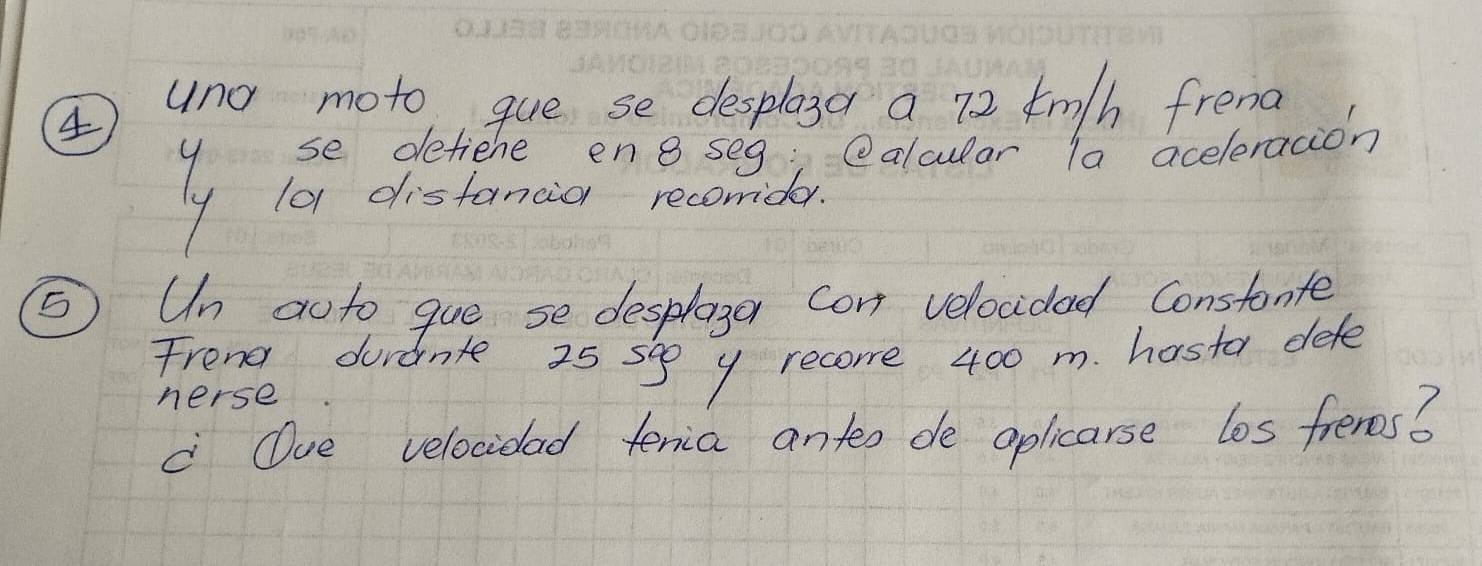 ④ una moto que se desplaza a 72 km/h frena,
y se detiene en 8 seg: Calcular la aceleración
y la distancia recorrida.
⑤ Un auto que se desplaza con velocidad Constante
Frena durante 25 seg y recorre 400 m. hasta dete
nerse.
¿ Que velocidad tenia antes de aplicarse los frenos?